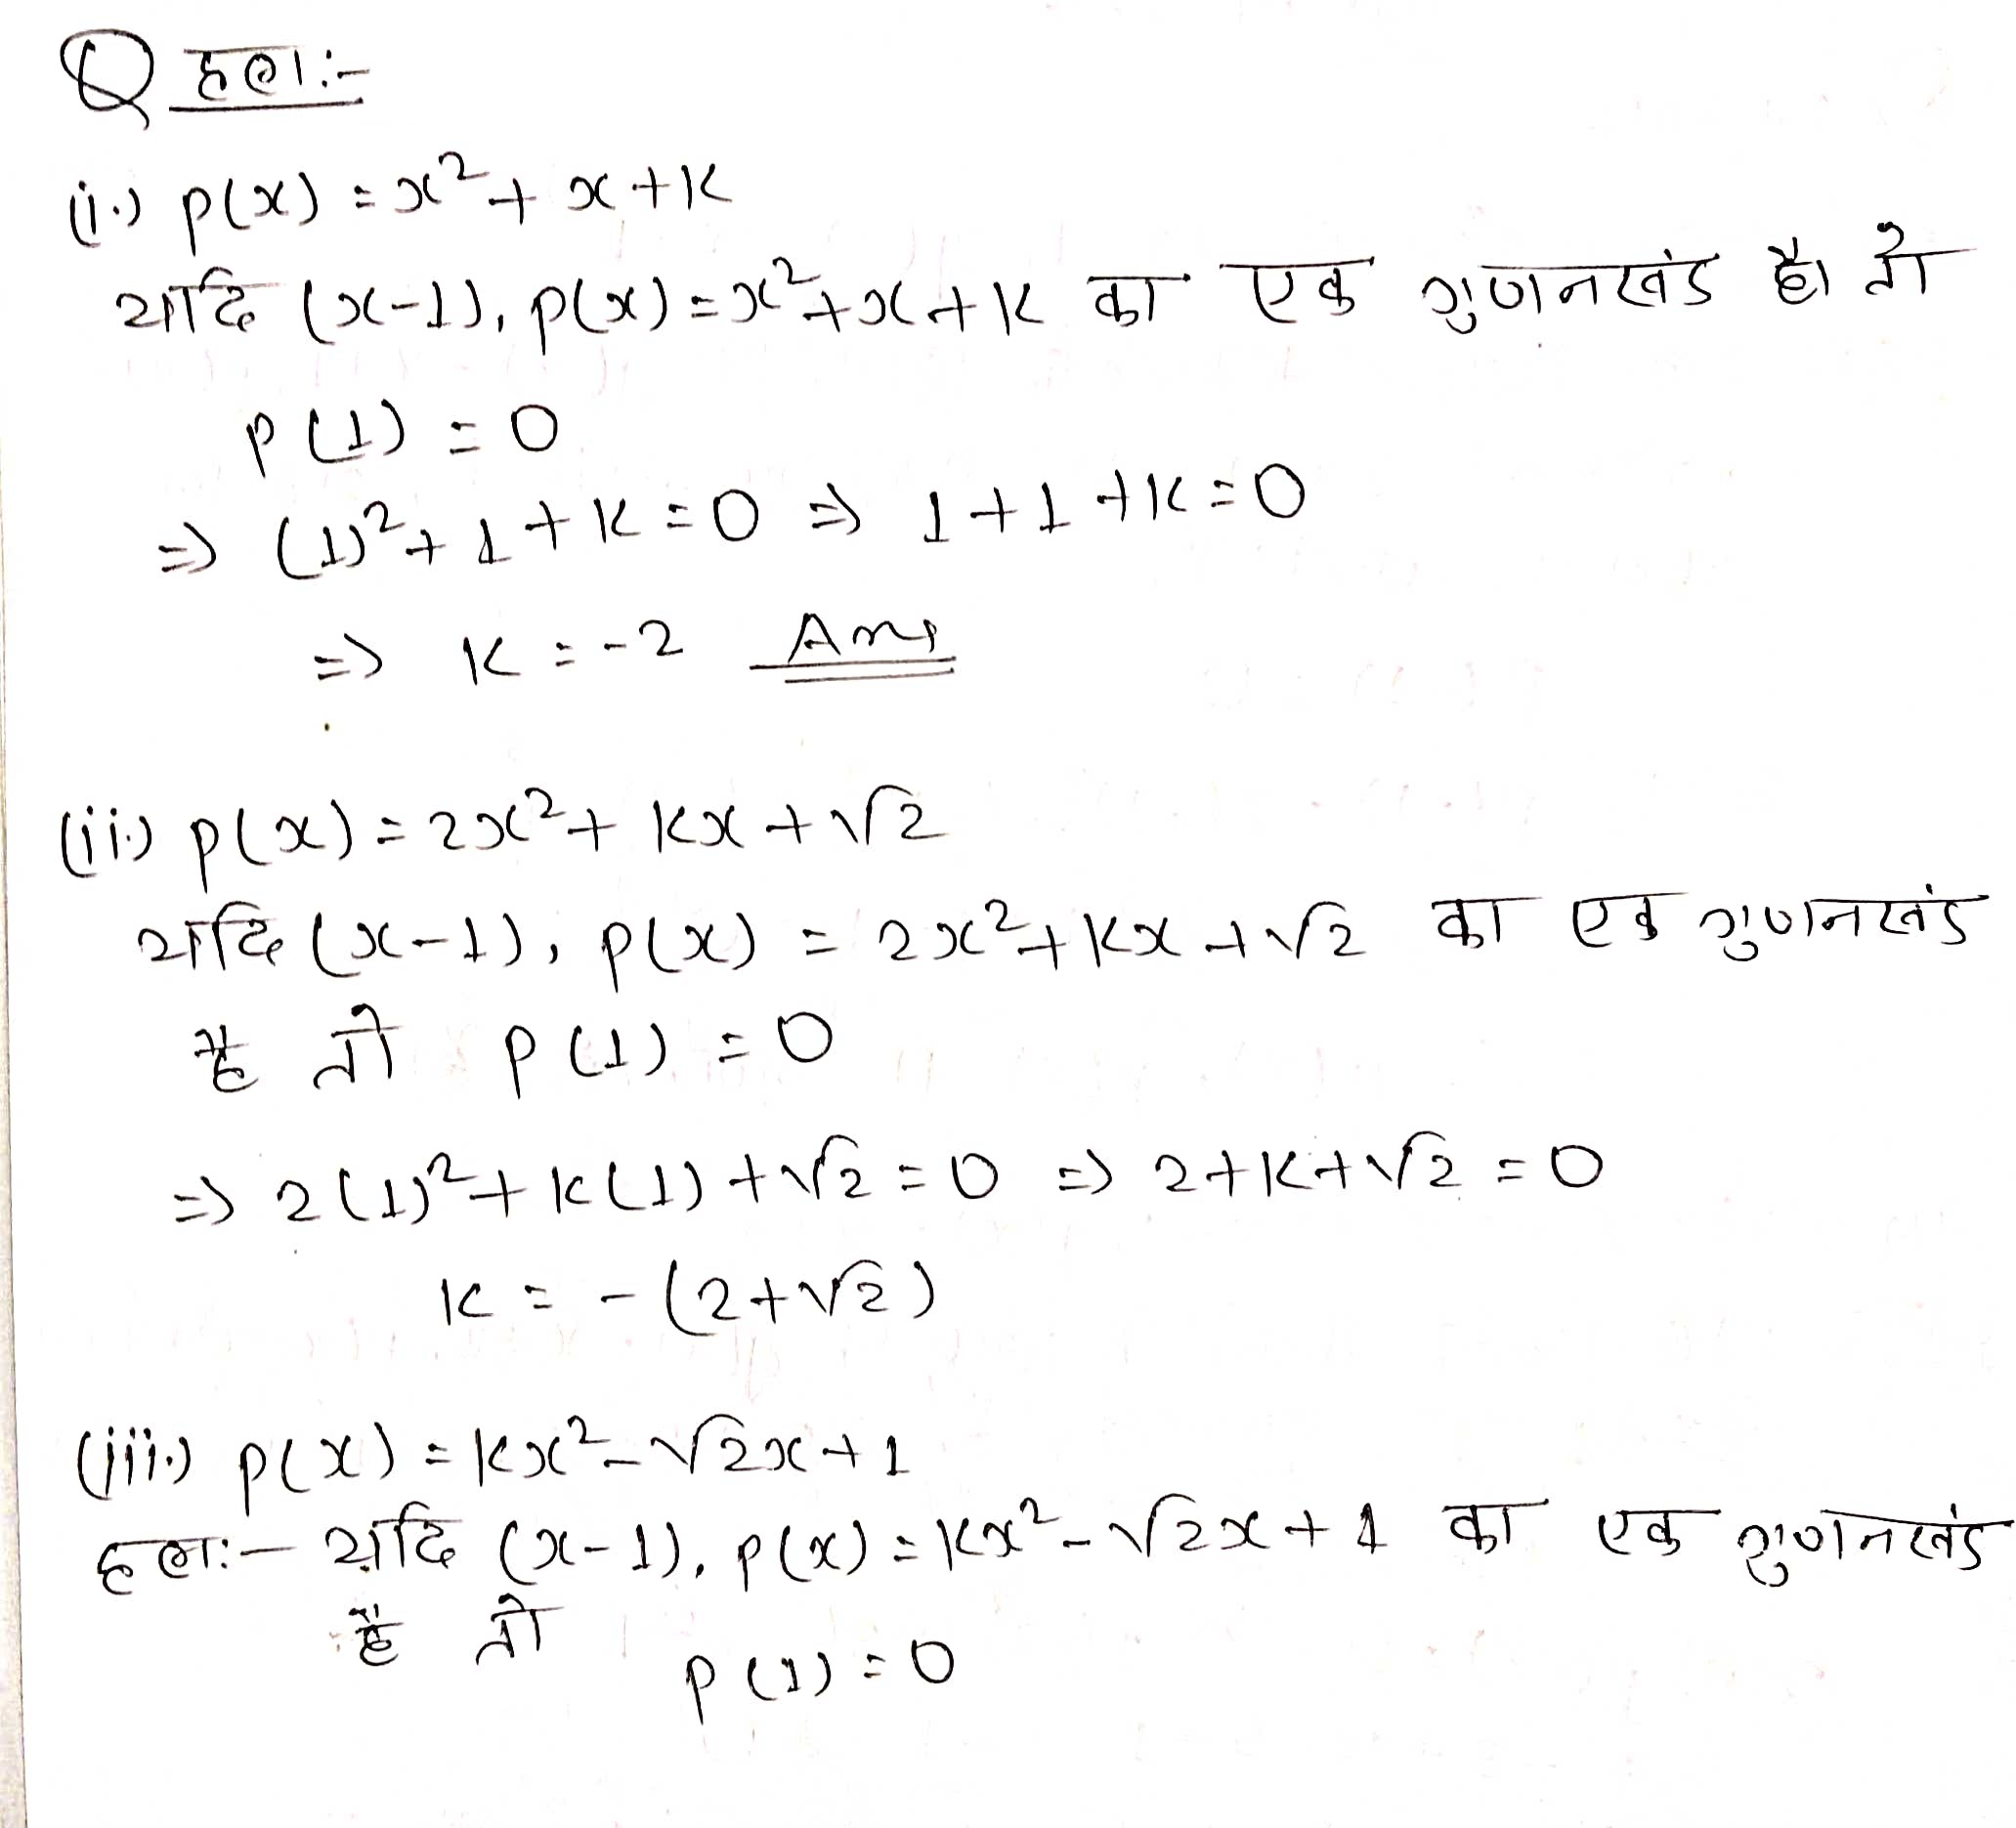 Q हल:-
(i.) p(x) = x² + x + k
यदि (x-1), p(x) = x² + x + k का एक गुणनखंड है। तो
p(1) = 0
=> (1)² + 1 + k = 0 => 1 + 1 + k = 0
=> k = -2 Ans
(ii.) p(x) = 2x² + kx + √2
यदि (x-1), p(x) = 2x² + kx + √2 का एक गुणनखंड
है तो p(1) = 0
=> 2(1)² + k(1) + √2 = 0 => 2 + k + √2 = 0
k = -(2+√2)
(iii.) p(x) = kx² - √2x + 1
हल:- यदि (x-1), p(x) = kx² - √2x + 1 का एक गुणनखंड
है तो p(1) = 0